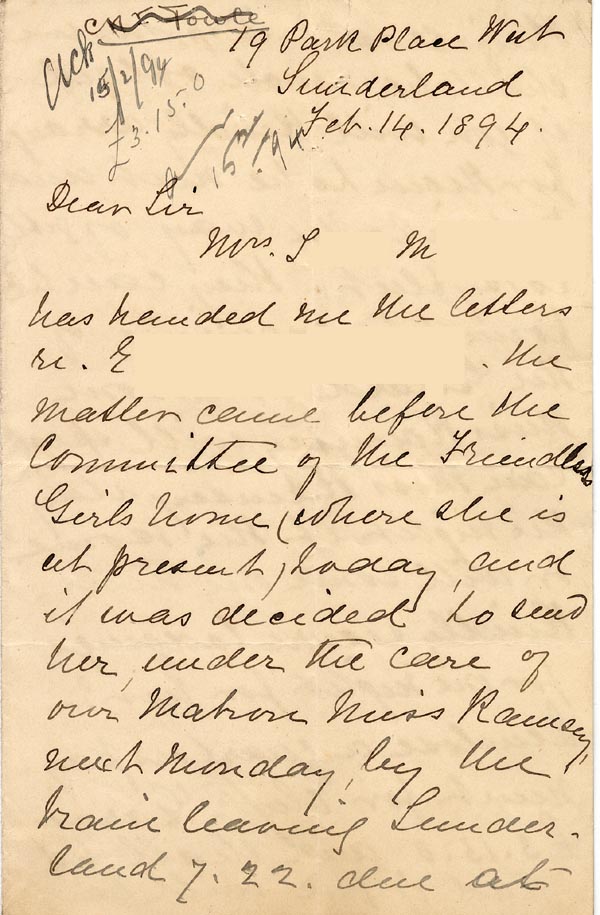 Mr Towle
Ack
15/2/94
£3.15.0
15/2/94
19 Park Place West
Sunderland
Feb. 14. 1894.
Dear Sir
Mrs. S M
has handed me the letters
re. E . The
matter came before the
Committee of the Friendless
Girls home, (where she is
at present,) today, and
it was decided to send
her, under the care of
our Matron Miss Ramsey,
next Monday, by the
train leaving Sunder-
land 7.22. due at